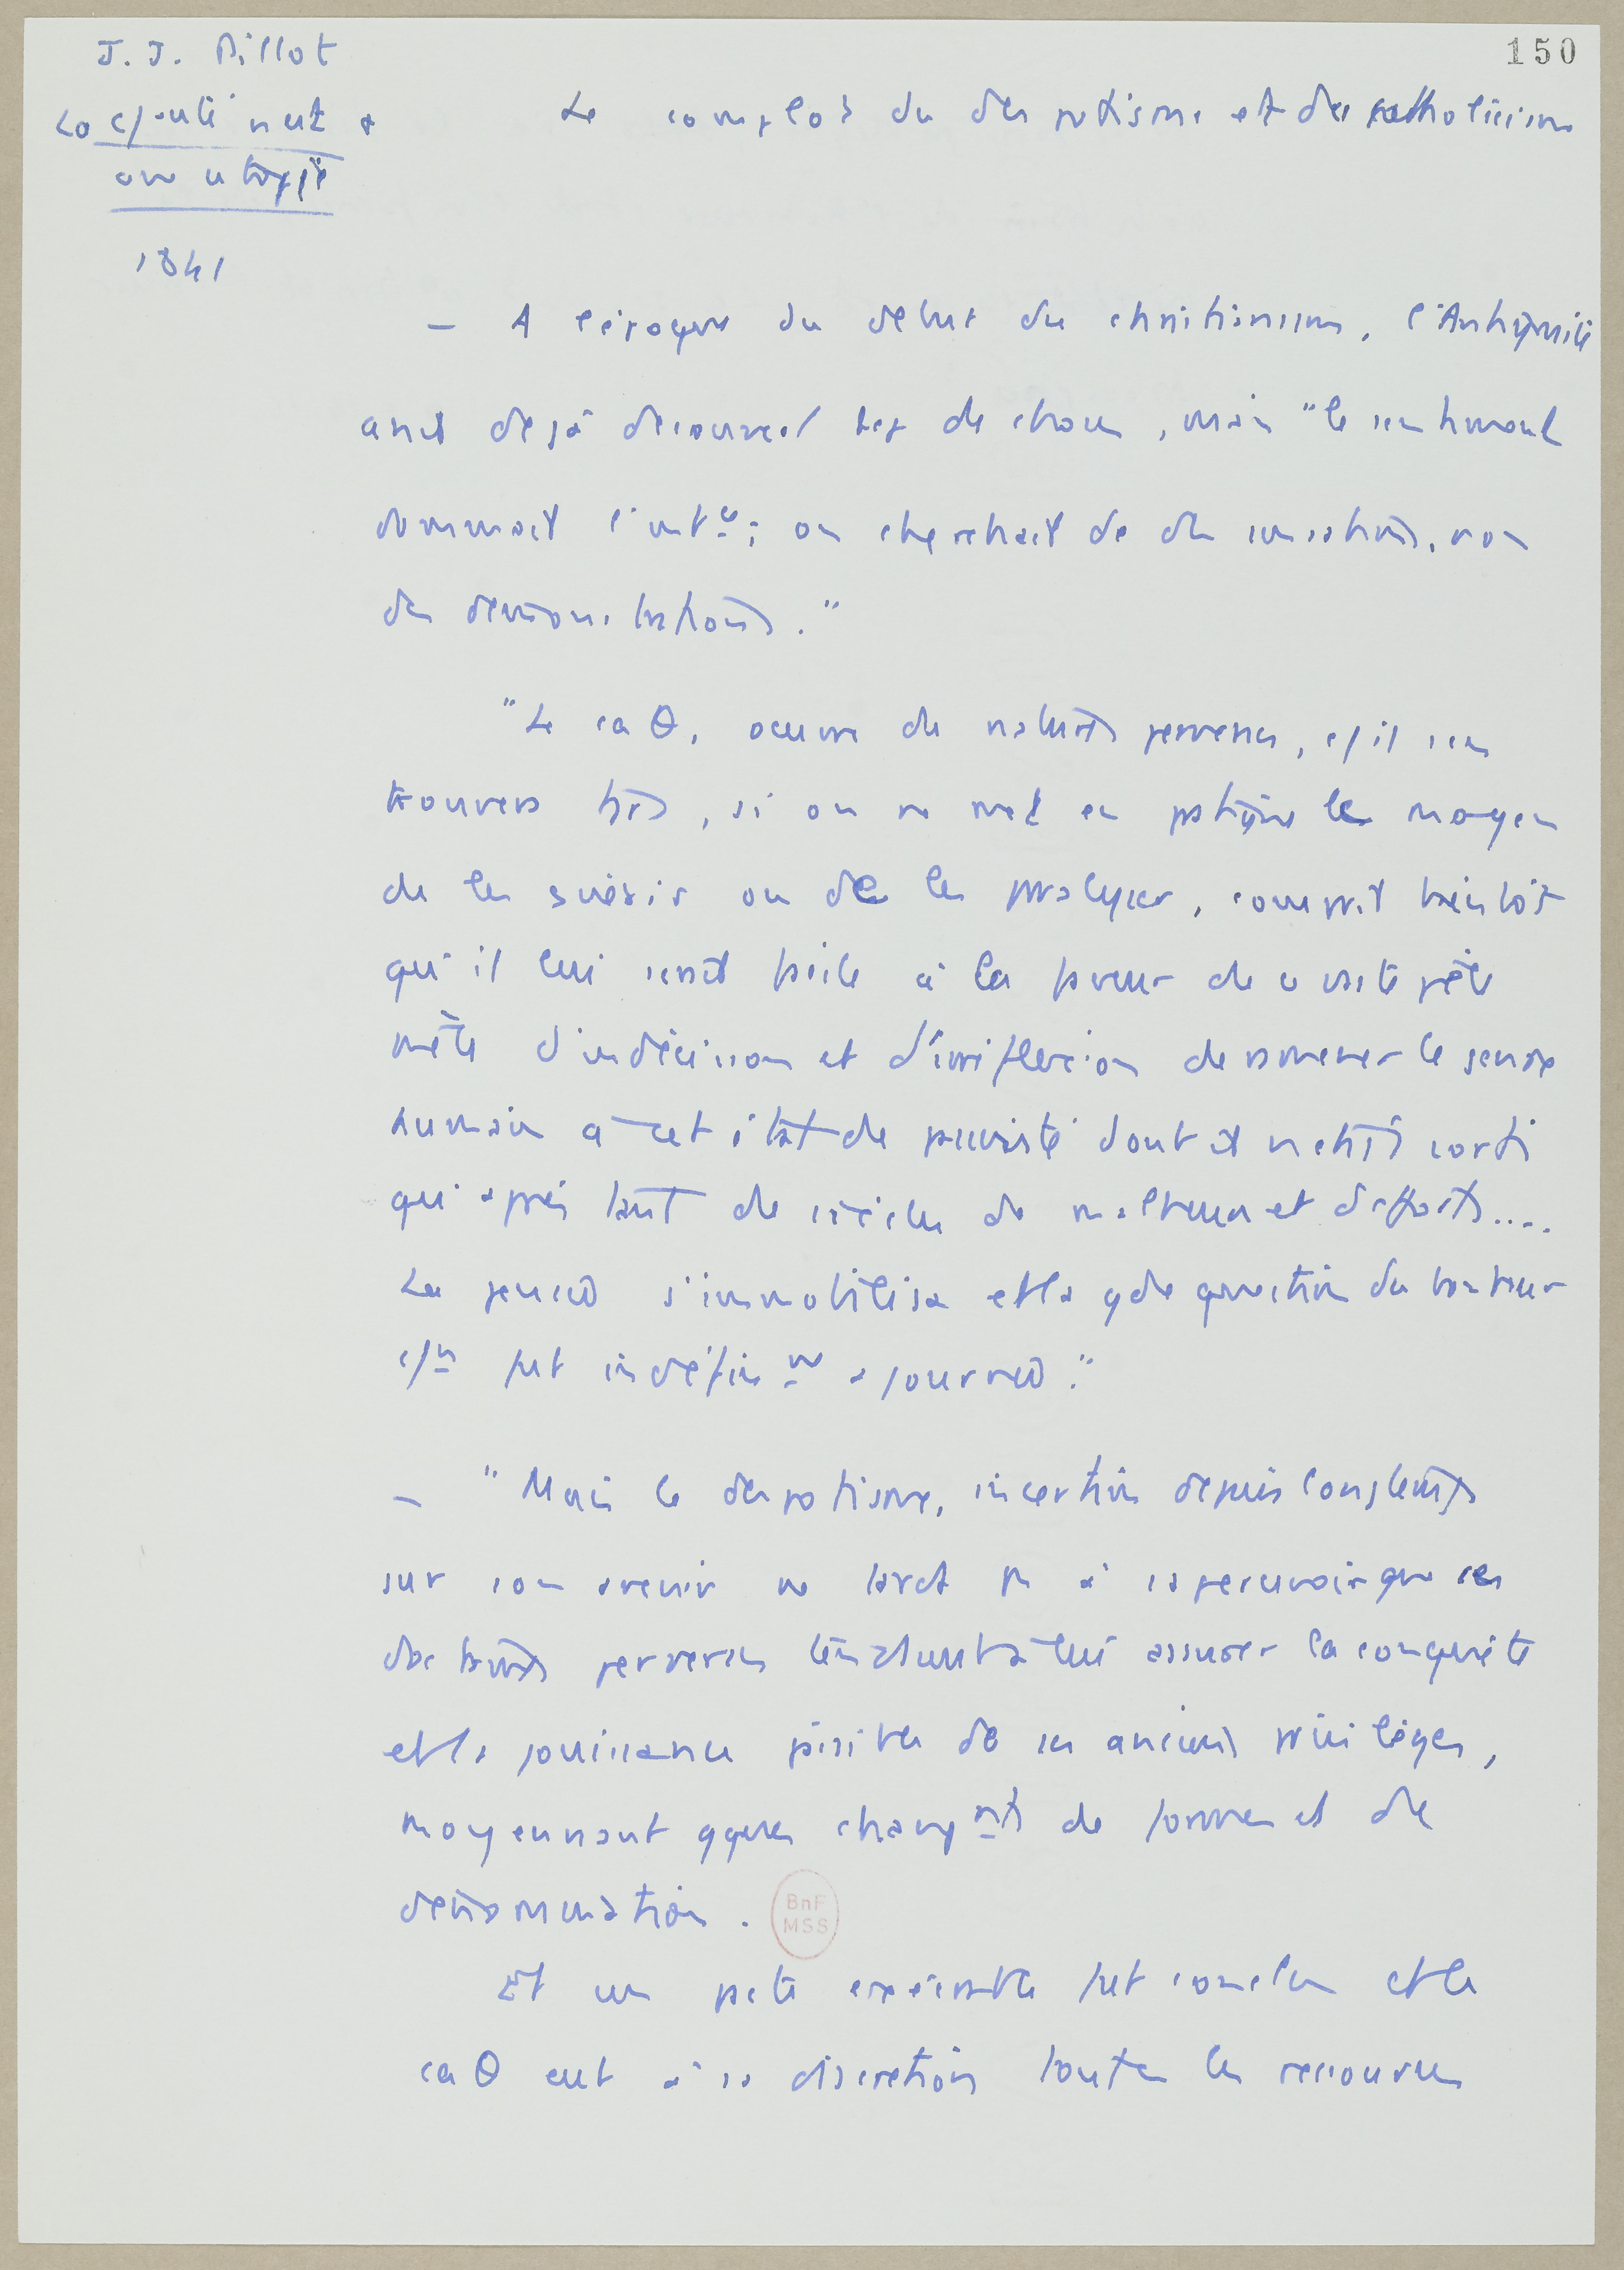 150
J. J. Pillot
La c/auté n'est +
une utopie
1841
Le complot du despotisme et du catholicisme
– A l'époque du début du christianisme, l'Antiquité
avait déjà découvert bcp de choses, mais "le sentiment
dominait l'int ; on cherchait de des sensations, non
des démonstrations."
"Le caθ, œuvre de natures perverses, c/ il s'en
trouvera tjrs, si on ne met en pratique le moyen
de les guérir ou de les paralyser, comprit bientôt
qu'il lui serait facile à la faveur de ce vaste pêle
mêle d'indécision et d'irréflexion de ramener le genre
humain à cet état de puérilité dont il n'était sorti
qu'après tant de siècles de malheurs et d'efforts....
La pensée s'immobilisa et la gde question du bonheur
c/n fut indéfinm ajournée."
– "Mais le despotisme, incertain depuis longtemps
sur son avenir ne tarda pas à s'apercevoir que ces
doctrines perverses tendaient à lui assurer la conquête
et la jouissance paisible de ses anciens privilèges,
moyennant qques changnts de formes et de
dénomination.
Et un pacte exécrable fut conclu et le
caθ eut à sa discrétion toutes les ressources
BnF
MSS